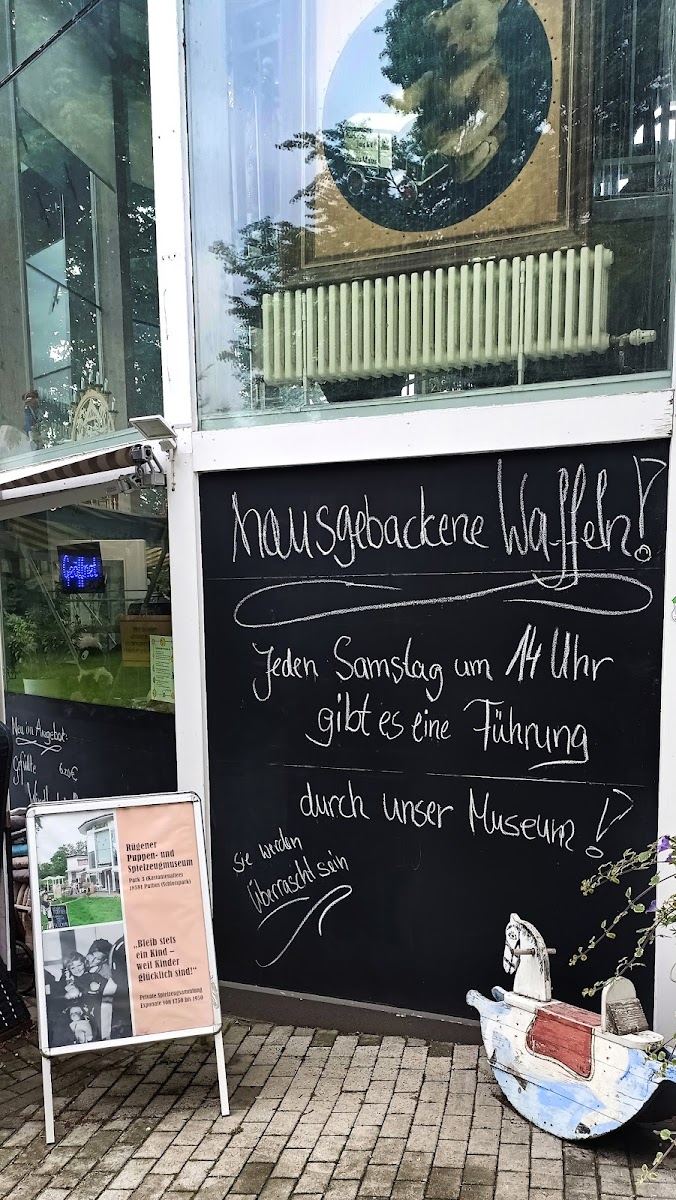 hausgebackene Waffeln!
Jeden Samstag um 14 Uhr
gibt es eine Führung
durch unser Museum!
sie werden
Überrascht sein
Neu im Angebot:
gefüllte 6,20€
Rügener
Puppen- und
Spielzeugmuseum
Park 3 (Kastanienallee)
18581 Putbus (Schlosspark)
„Bleib stets
ein Kind –
weil Kinder
glücklich sind!“
Private Spielzeugsammlung
Exponate von 1750 bis 1950